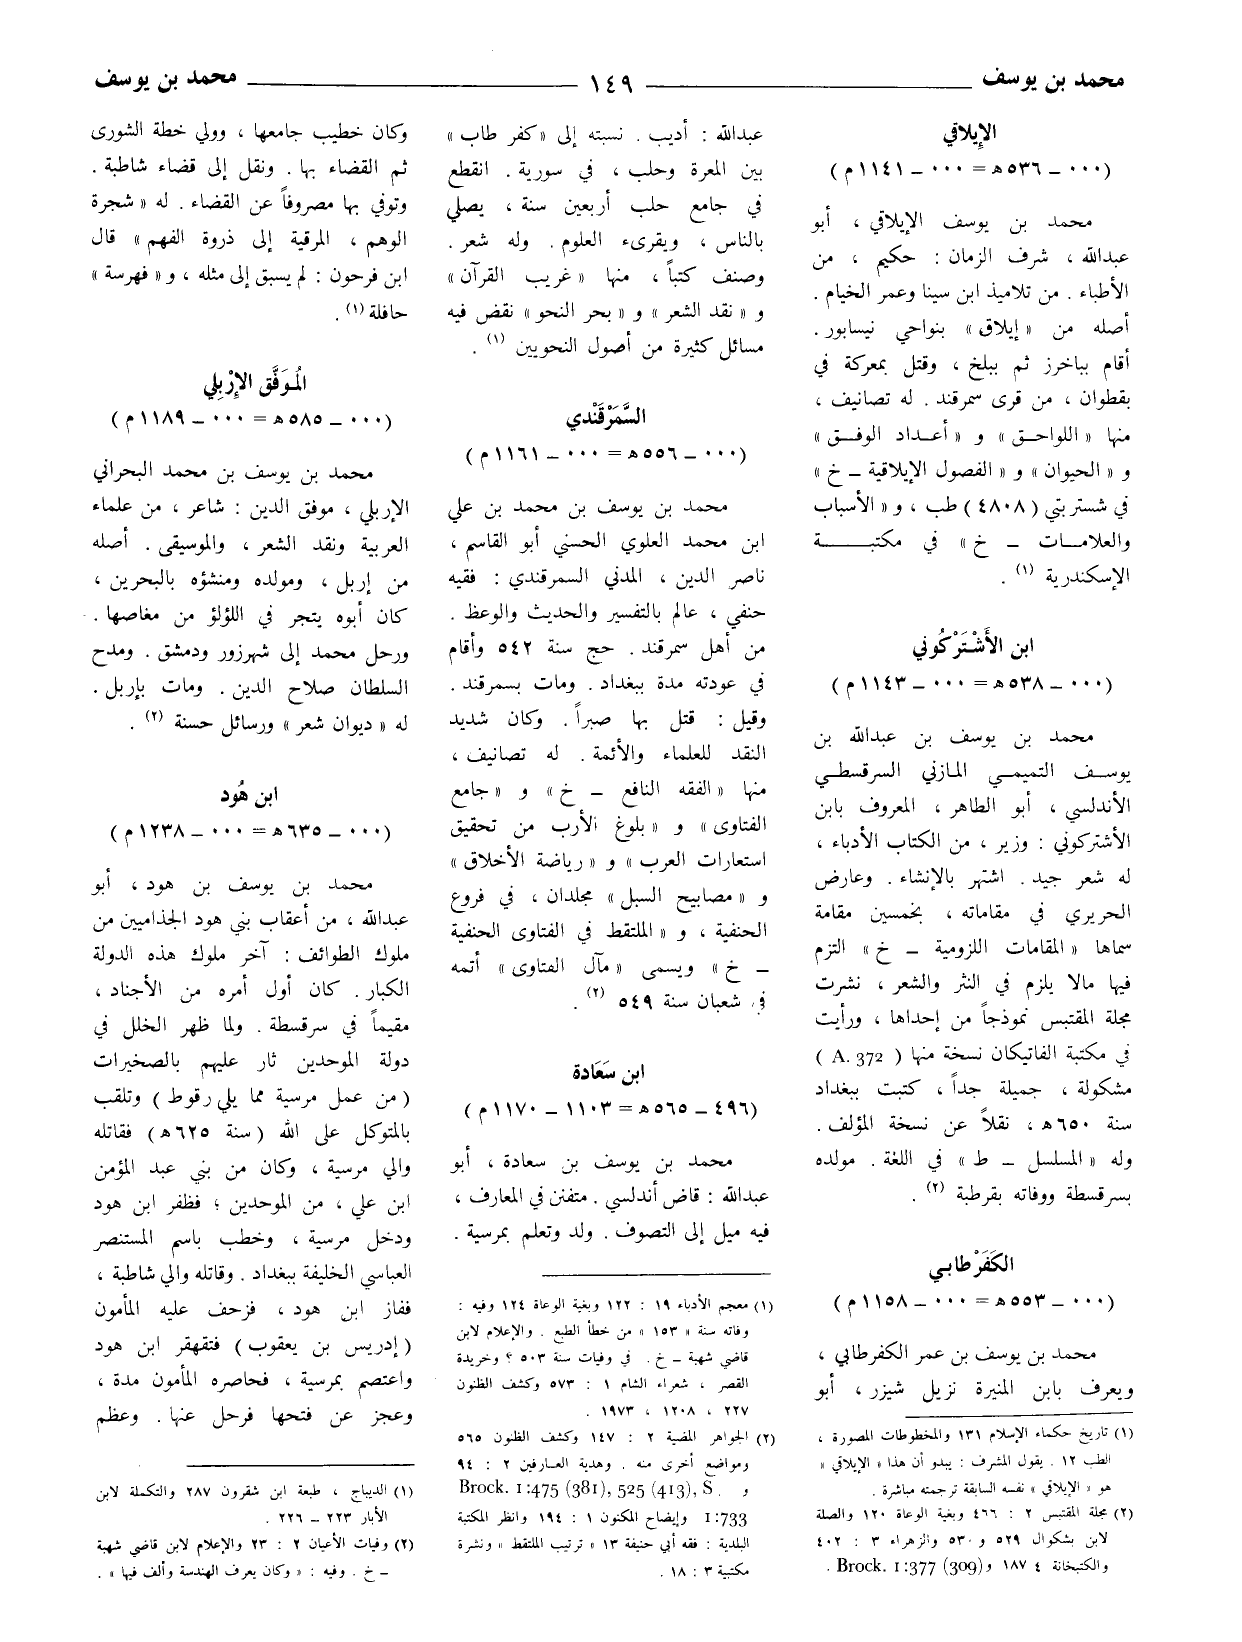 محمد بن يوسف ١٤٩ محمد بن يوسف
الإيلاقي
( ٠٠٠ ـ ٥٣٦ هـ = ٠٠٠ ـ ١١٤١ م )
محمد بن يوسف الإيلاقي ، أبو
عبدالله ، شرف الزمان : حكيم ، من
الأطباء . من تلاميذ ابن سينا وعمر الخيام .
أصله من « إيلاق » بنواحي نيسابور .
أقام بباخرز ثم ببلخ ، وقتل بمعركة في
بقطوان ، من قرى سمرقند . له تصانيف ،
منها « اللواحق » و « أعداد الوفق »
و « الحيوان » و « الفصول الإيلاقية ـ خ »
في شستربتي ( ٤٨٠٨ ) طب ، و « الأسباب
والعلامات ـ خ » في مكتبة
الإسكندرية (١) .
ابن الأَشْتَرْكُوني
( ٠٠٠ ـ ٥٣٨ هـ = ٠٠٠ ـ ١١٤٣ م )
محمد بن يوسف بن عبدالله بن
يوسف التميمي المازني السرقسطي
الأندلسي ، أبو الطاهر ، المعروف بابن
الأشتركوني : وزير ، من الكتاب الأدباء ،
له شعر جيد . اشتهر بالإنشاء . وعارض
الحريري في مقاماته ، بخمسين مقامة
سماها « المقامات اللزومية ـ خ » التزم
فيها مالا يلزم في النثر والشعر ، نشرت
مجلة المقتبس نموذجاً من إحداها ، ورأيت
في مكتبة الفاتيكان نسخة منها ( A. 372 )
مشكولة ، جميلة جداً ، كتبت ببغداد
سنة ٦٥٠ هـ ، نقلاً عن نسخة المؤلف .
وله « المسلسل ـ ط » في اللغة . مولده
بسرقسطة ووفاته بقرطبة (٢) .
الكَفَرْطابي
( ٠٠٠ ـ ٥٥٣ هـ = ٠٠٠ ـ ١١٥٨ م )
محمد بن يوسف بن عمر الكفرطابي ،
ويعرف بابن المنيرة نزيل شيزر ، أبو
(١) تاريخ حكماء الإسلام ١٣١ والمخطوطات المصورة ،
الطب ١٢ . يقول المشرف : يبدو أن هذا « الإيلاقي »
هو « الإيلاقي » نفسه السابقة ترجمته مباشرة .
(٢) مجلة المقتبس ٢ : ٤٦٦ وبغية الوعاة ١٢٠ والصلة
لابن بشكوال ٥٢٩ و ٥٣٠ والزهراء ٣ : ٤٠٢
والكتبخانة ٤ ١٨٧ و Brock. 1:377 (309) .
عبدالله : أديب . نسبته إلى « كفر طاب »
بين المعرة وحلب ، في سورية . انقطع
في جامع حلب أربعين سنة ، يصلي
بالناس ، ويقرىء العلوم . وله شعر .
وصنف كتباً ، منها « غريب القرآن »
و « نقد الشعر » و « بحر النحو » نقض فيه
مسائل كثيرة من أصول النحويين (١) .
السَّمَرْقَنْدي
( ٠٠٠ ـ ٥٥٦ هـ = ٠٠٠ ـ ١١٦١ م )
محمد بن يوسف بن محمد بن علي
ابن محمد العلوي الحسني أبو القاسم ،
ناصر الدين ، المدني السمرقندي : فقيه
حنفي ، عالم بالتفسير والحديث والوعظ .
من أهل سمرقند . حج سنة ٥٤٢ وأقام
في عودته مدة ببغداد . ومات بسمرقند .
وقيل : قتل بها صبراً . وكان شديد
النقد للعلماء والأئمة . له تصانيف ،
منها « الفقه النافع ـ خ » و « جامع
الفتاوى » و « بلوغ الأرب من تحقيق
استعارات العرب » و « رياضة الأخلاق »
و « مصابيح السبل » مجلدان ، في فروع
الحنفية ، و « الملتقط في الفتاوى الحنفية
ـ خ » ويسمى « مآل الفتاوى » أتمه
في شعبان سنة ٥٤٩ (٢) .
ابن سَعَادة
( ٤٩٦ ـ ٥٦٥ هـ = ١١٠٣ ـ ١١٧٠ م )
محمد بن يوسف بن سعادة ، أبو
عبدالله : قاض أندلسي . متفنن في المعارف ،
فيه ميل إلى التصوف . ولد وتعلم بمرسية .
(١) معجم الأدباء ١٩ : ١٢٢ وبغية الوعاة ١٢٤ وفيه :
وفاته سنة « ١٥٣ » من خطأ الطبع . والإعلام لابن
قاضي شهبة ـ خ . في وفيات سنة ٥٠٣ ؟ وخريدة
القصر ، شعراء الشام ١ : ٥٧٣ وكشف الظنون
٢٢٧ ، ١٢٠٨ ، ١٩٧٣ .
(٢) الجواهر المضية ٢ : ١٤٧ وكشف الظنون ٥٦٥
ومواضع أخرى منه . وهدية العارفين ٢ : ٩٤
و Brock. 1:475 (381), 525 (413), S.
1:733 وإيضاح المكنون ١ : ١٩٤ وانظر المكتبة
البلدية : فقه أبي حنيفة ١٣ « ترتيب الملتقط » ونشرة
مكتبية ٣ : ١٨ .
وكان خطيب جامعها ، وولي خطة الشورى
ثم القضاء بها . ونقل إلى قضاء شاطبة .
وتوفي بها مصروفاً عن القضاء . له « شجرة
الوهم ، المرقية إلى ذروة الفهم » قال
ابن فرحون : لم يسبق إلى مثله ، و « فهرسة »
حافلة (١) .
المُوَفَّق الإرْبِلي
( ٠٠٠ ـ ٥٨٥ هـ = ٠٠٠ ـ ١١٨٩ م )
محمد بن يوسف بن محمد البحراني
الإربلي ، موفق الدين : شاعر ، من علماء
العربية ونقد الشعر ، والموسيقى . أصله
من إربل ، ومولده ومنشؤه بالبحرين ،
كان أبوه يتجر في اللؤلؤ من مغاصها .
ورحل محمد إلى شهرزور ودمشق . ومدح
السلطان صلاح الدين . ومات بإربل .
له « ديوان شعر » ورسائل حسنة (٢) .
ابن هُود
( ٠٠٠ ـ ٦٣٥ هـ = ٠٠٠ ـ ١٢٣٨ م )
محمد بن يوسف بن هود ، أبو
عبدالله ، من أعقاب بني هود الجذاميين من
ملوك الطوائف : آخر ملوك هذه الدولة
الكبار . كان أول أمره من الأجناد ،
مقيماً في سرقسطة . ولما ظهر الخلل في
دولة الموحدين ثار عليهم بالصخيرات
( من عمل مرسية مما يلي رقوط ) وتلقب
بالمتوكل على الله ( سنة ٦٢٥ هـ ) فقاتله
والي مرسية ، وكان من بني عبد المؤمن
ابن علي ، من الموحدين ؛ فظفر ابن هود
ودخل مرسية ، وخطب باسم المستنصر
العباسي الخليفة ببغداد . وقاتله والي شاطبة ،
ففاز ابن هود ، فزحف عليه المأمون
( إدريس بن يعقوب ) فتقهقر ابن هود
واعتصم بمرسية ، فحاصره المأمون مدة ،
وعجز عن فتحها فرحل عنها . وعظم
(١) الديباج ، طبعة ابن شقرون ٢٨٧ والتكملة لابن
الأبار ٢٢٣ ـ ٢٢٦ .
(٢) وفيات الأعيان ٢ : ٢٣ والإعلام لابن قاضي شهبة
ـ خ . وفيه : « وكان يعرف الهندسة وألف فيها » .